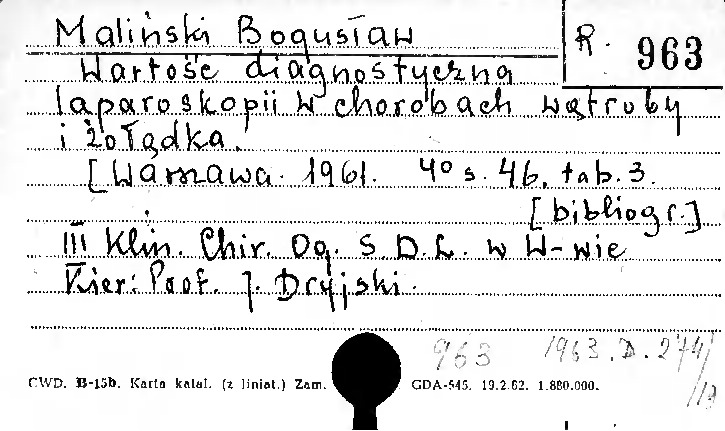 Maliński Bogusław
R. 963
Wartość diagnostyczna
laparoskopii w chorobach wątroby
i żołądka.
[Warszawa. 1961. 4° s. 46, tab. 3.
[bibliogr.]
III Klin. Chir. Og. S.D.L. w W-wie
Kier: Prof. J. Dryjski.
963 1963.D.274/
/13
CWD. B-15b. Karta katal. (z liniat.) Zam. GDA-545. 19.2.62. 1.880.000.